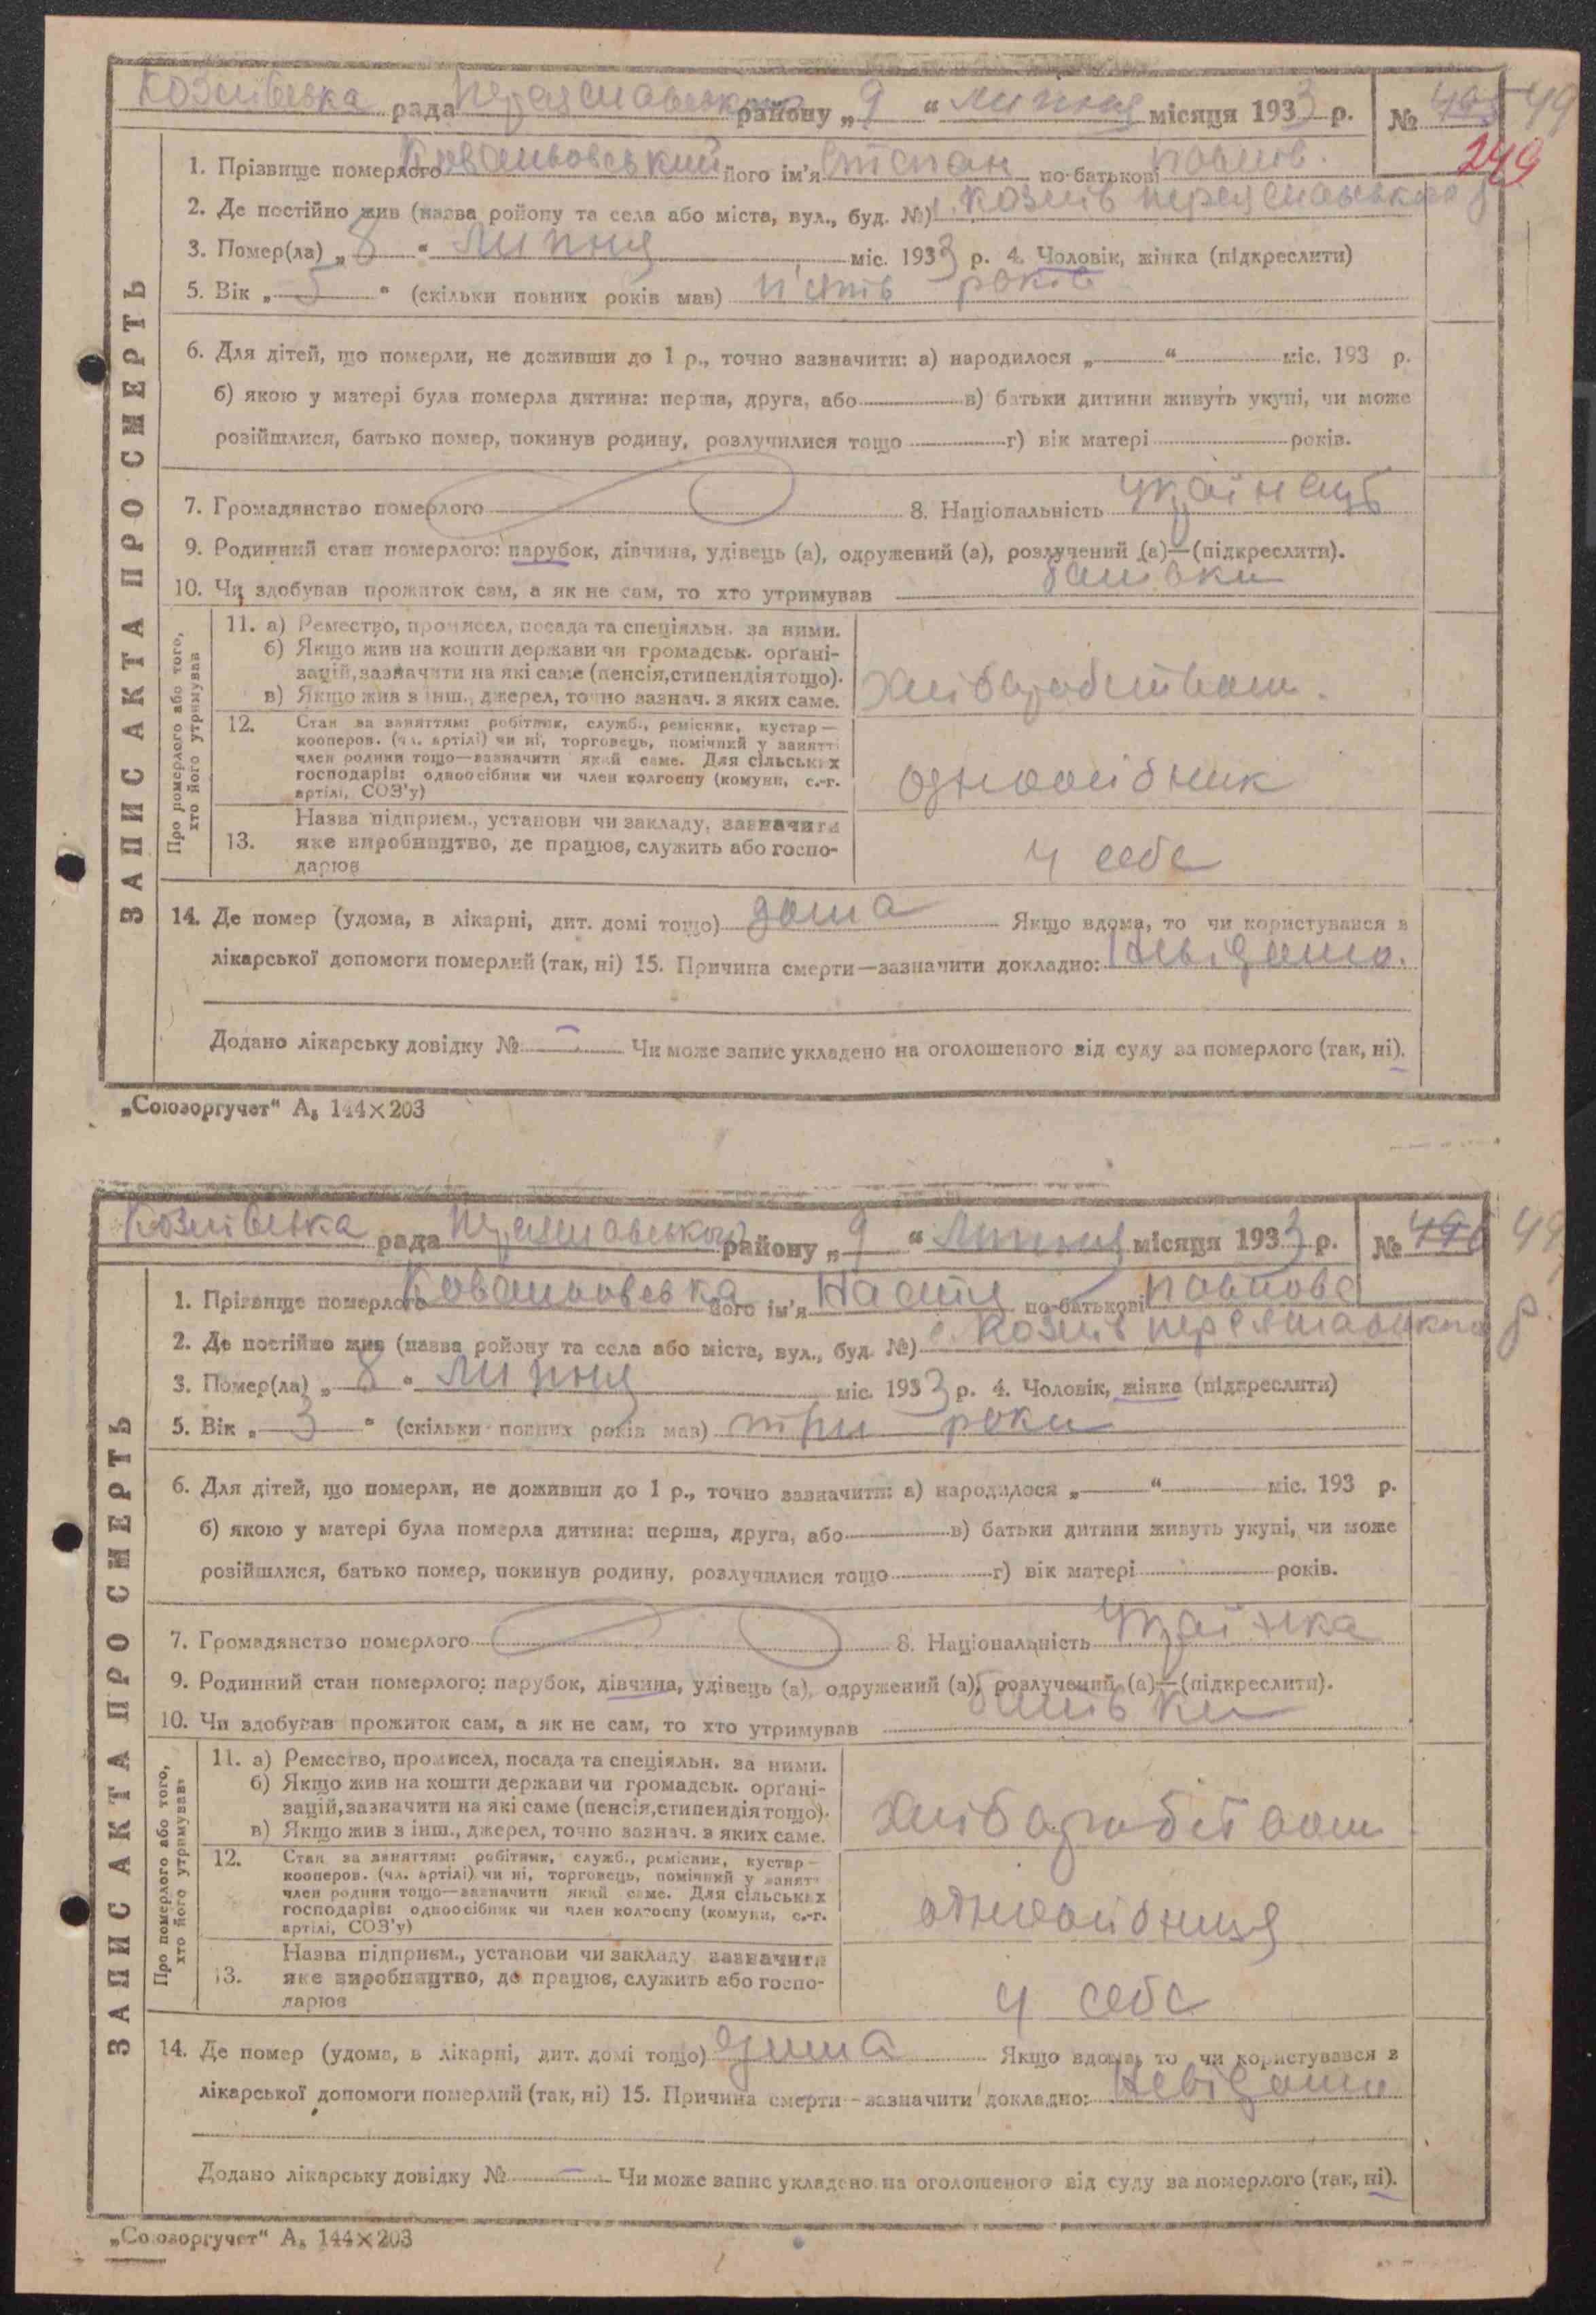 Козлівська рада Переяславського району „9“ липня місяця 1933 р. №
249
ЗАПИС АКТА ПРО СМЕРТЬ
1. Прізвище померлого Ковальовський його ім'я Степан по-батькові Павлів.
2. Де постійно жив (назва ройону та села або міста, вул., буд. №) с. Козлів переяславськог р
3. Помер(ла) „8“ липня міс. 1933 р. 4. Чоловік, жінка (підкреслити)
5. Вік „5“ (скільки повних років мав) п'ять років
6. Для дітей, що померли, не доживши до 1 р., точно зазначити: а) народилося „ “ міс. 193 р.
б) якою у матері була померла дитина: перша, друга, або в) батьки дитини живуть укупі, чи може
розійшлися, батько помер, покинув родину, розлучилися тощо г) вік матері років.
7. Громадянство померлого 8. Національність українець
9. Родинний стан померлого: парубок, дівчина, удівець (а), одружений (а), розлучений (а)—(підкреслити).
10. Чи здобував прожиток сам, а як не сам, то хто утримував батьки
Про померлого або того, хто його утримував
11. а) Ремество, промисел, посада та спеціяльн. за ними.
б) Якщо жив на кошти держави чи громадськ. органі-
зацій, зазначити на які саме (пенсія, стипендія тощо).
в) Якщо жив з інш., джерел, точно зазнач. з яких саме.
хліборобством.
12. Стан за заняттям: робітник, служб., ремісник, кустар—
кооперов. (чл. артілі) чи ні, торговець, помічний у занятті
член родини тощо—зазначити який саме. Для сільських
господарів: одноосібник чи член колгоспу (комуни, с.-г.
артілі, СОЗ'у)
одноосібник
13. Назва підприєм., установи чи закладу, зазначити
яке виробництво, де працює, служить або госпо-
дарює
у себе
14. Де помер (удома, в лікарні, дит. домі тощо) дома Якщо вдома, то чи користувався з
лікарської допомоги померлий (так, ні) 15. Причина смерти—зазначити докладно: Невідомо.
Додано лікарську довідку № — Чи може запис укладено на оголошеного від суду за померлого (так, ні).
„Союзоргучет“ А₅ 144×203
Козлівська рада Переяславського району „9“ Липня місяця 1933 р. №
ЗАПИС АКТА ПРО СМЕРТЬ
1. Прізвище померлого Ковальовська його ім'я Настя по-батькові Павлова
2. Де постійно жив (назва ройону та села або міста, вул., буд. №) с. Козлів переяславського р.
3. Помер(ла) „8“ липня міс. 1933 р. 4. Чоловік, жінка (підкреслити)
5. Вік „3“ (скільки повних років мав) три роки
6. Для дітей, що померли, не доживши до 1 р., точно зазначити: а) народилося „ “ міс. 193 р.
б) якою у матері була померла дитина: перша, друга, або в) батьки дитини живуть укупі, чи може
розійшлися, батько помер, покинув родину, розлучилися тощо г) вік матері років.
7. Громадянство померлого 8. Національність Українка
9. Родинний стан померлого: парубок, дівчина, удівець (а), одружений (а), розлучений (а)—(підкреслити).
10. Чи здобував прожиток сам, а як не сам, то хто утримував батьки
Про померлого або того, хто його утримував
11. а) Ремество, промисел, посада та спеціяльн. за ними.
б) Якщо жив на кошти держави чи громадськ. органі-
зацій, зазначити на які саме (пенсія, стипендія тощо).
в) Якщо жив з інш., джерел, точно зазнач. з яких саме.
хліборобством
12. Стан за заняттям: робітник, служб., ремісник, кустар—
кооперов. (чл. артілі) чи ні, торговець, помічний у занятті
член родини тощо—зазначити який саме. Для сільських
господарів: одноосібник чи член колгоспу (комуни, с.-г.
артілі, СОЗ'у)
одноосібниця
13. Назва підприєм., установи чи закладу зазначити
яке виробництво, де працює, служить або госпо-
дарює
у себе
14. Де помер (удома, в лікарні, дит. домі тощо) дома Якщо вдома, то чи користувався з
лікарської допомоги померлий (так, ні) 15. Причина смерти—зазначити докладно: Невідомо
Додано лікарську довідку № — Чи може запис укладено на оголошеного від суду за померлого (так, ні).
„Союзоргучет“ А₅ 144×203